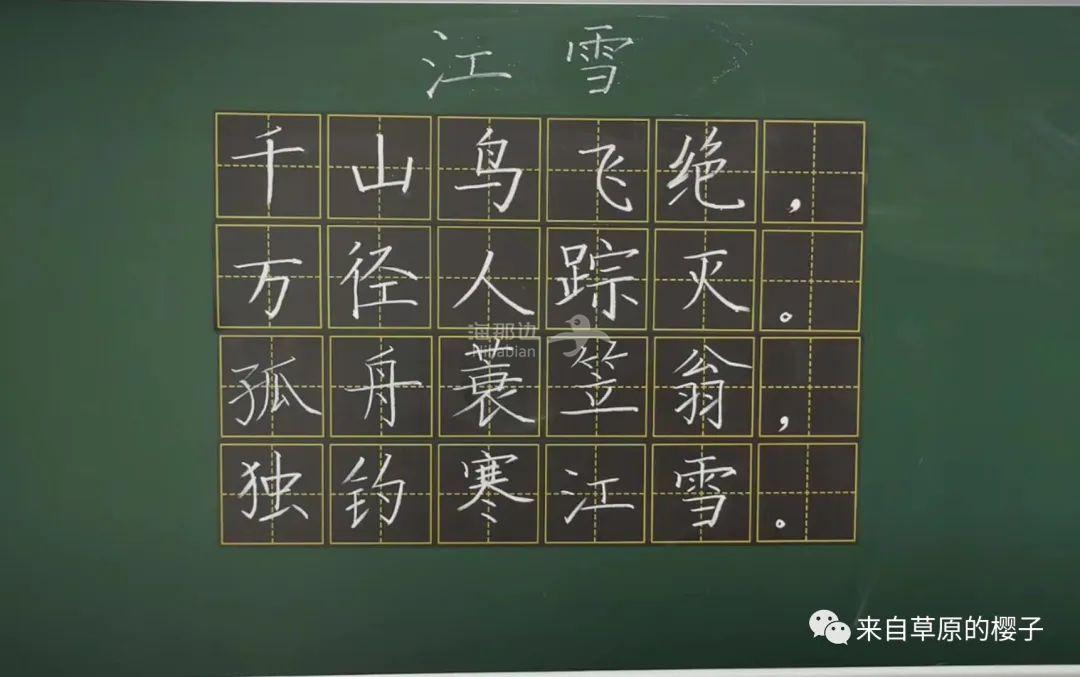 江雪
千山鸟飞绝，
万径人踪灭。
海那边
Nihabian
孤舟蓑笠翁，
独钓寒江雪。
来自草原的樱子